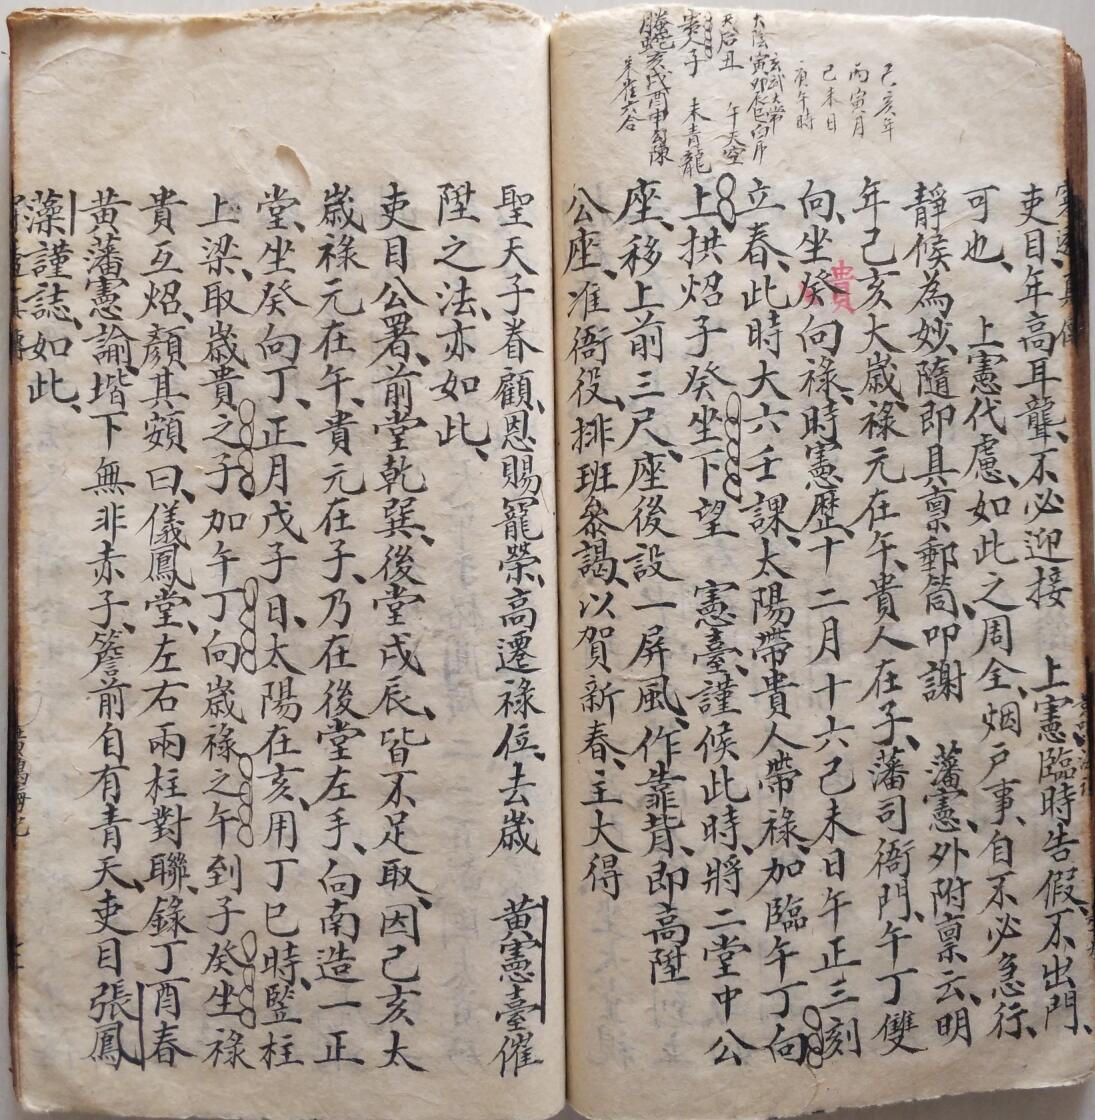 己亥年
丙寅月
己未日
庚午時
玄武 太常
太陰 寅卯辰巳 白虎
天后 丑 午 天空
貴人 子 未 青龍
螣蛇 亥戌酉申 勾陳
朱雀 六合
吏目年高耳聾、不必迎接 上憲臨時告假、不出門、
可也、 上憲代慮、如此之周全、烟户事、自不必急行、
靜候為妙、隨即具禀郵筒、叩謝 藩憲、外附禀云、明
年己亥大歲、祿元在午、貴人在子、藩司衙門、午丁雙
向、坐癸向祿、時憲歷、十二月十六己未日午正三刻
貴
立春、此時大六壬課、太陽帶貴人帶祿、加臨午丁向
上、拱炤子癸坐下、望 憲臺、謹候此時、將二堂中公
座、移上前三尺、座後設一屏風、作靠背、即高陞
公座、准衙役、排班叅謁、以賀新春、主大得
聖天子眷顧、恩賜寵榮、高遷祿位、去歲 黄憲臺催
陞之法、亦如此、
吏目公署、前堂乾巽、後堂戌辰、皆不足取、因己亥太
歲祿元在午、貴元在子、乃在後堂左手、向南造一正
堂、坐癸向丁、正月戊子日、太陽在亥、用丁巳時、竪柱
上梁、取歲貴之子、加午丁向、歲祿之午、到子癸坐、祿
貴互炤、顏其額曰、儀鳳堂、左右兩柱對聯、錄丁酉春
黄藩憲論、堦下無非赤子、簷前自有青天、吏目張鳳
藻謹誌、如此、